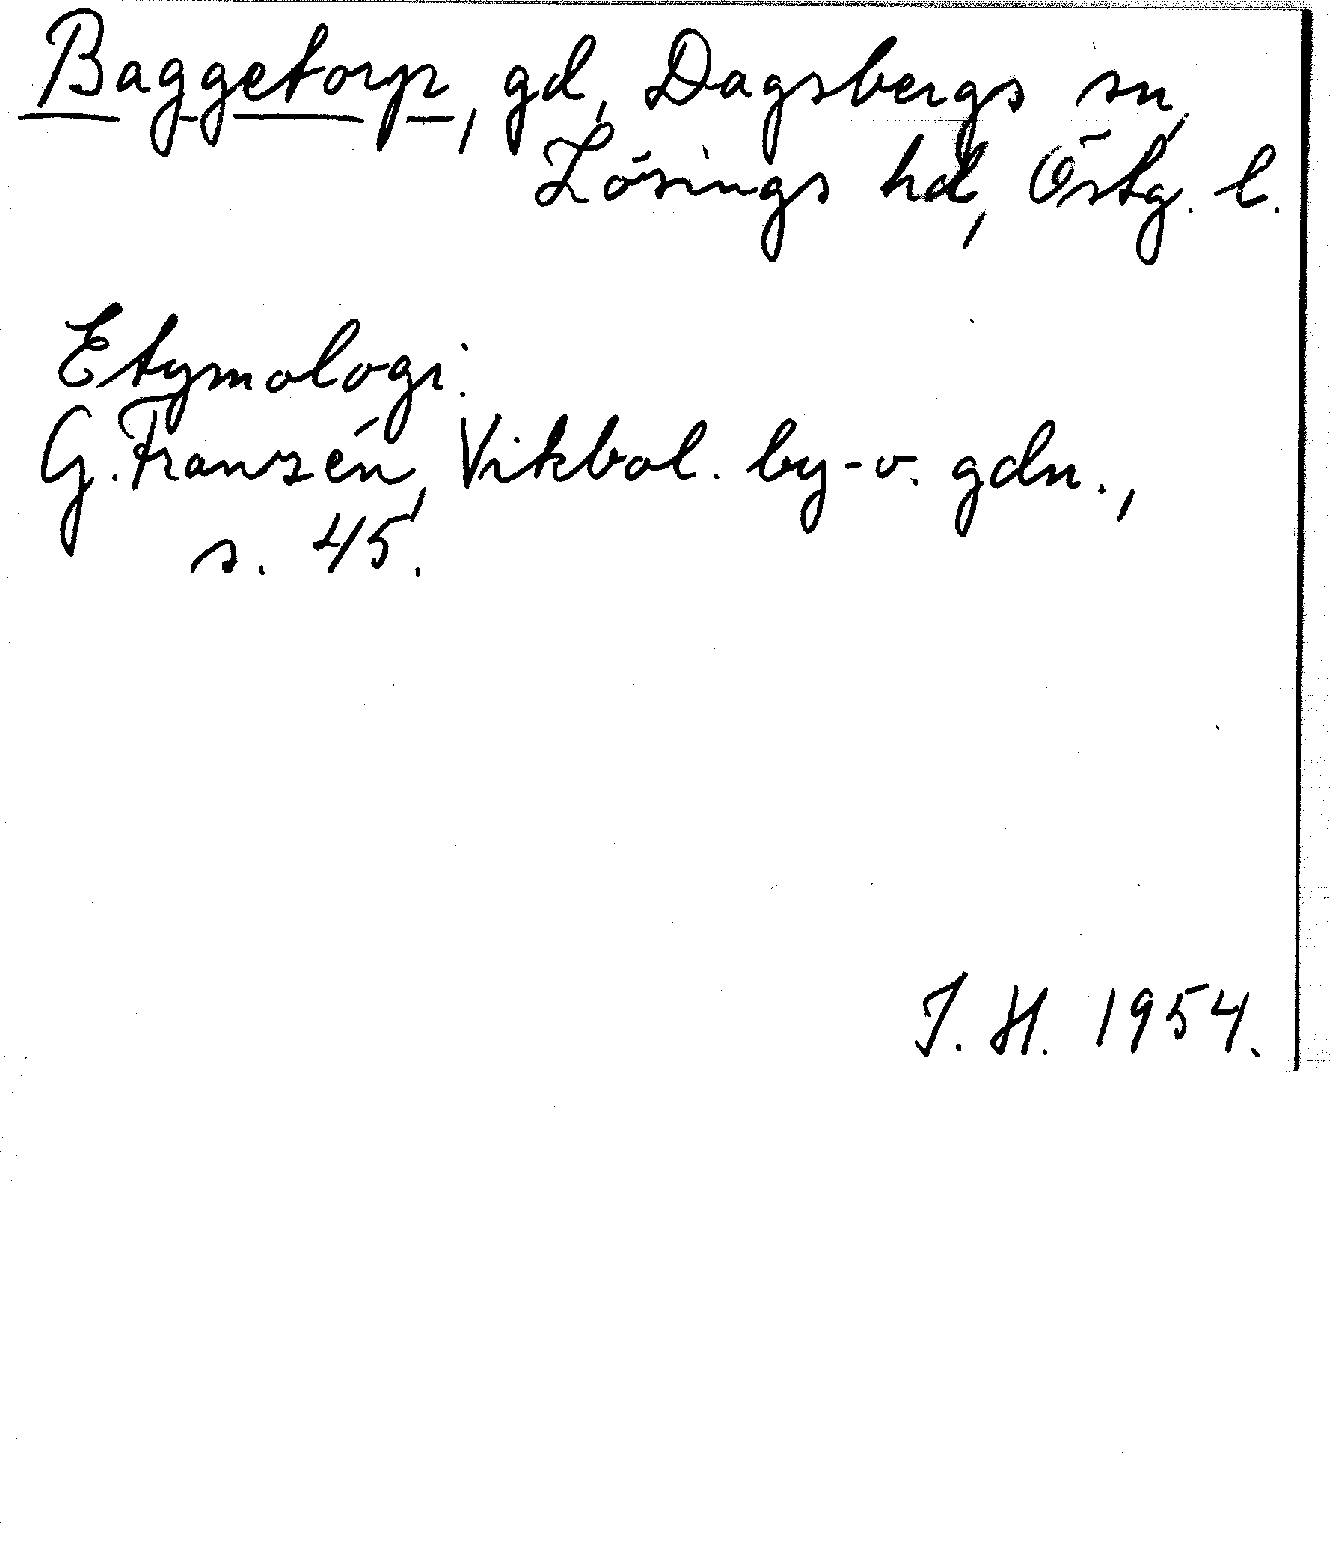 Baggetorp, gd, Dagsbergs sn,
Lösings hd, Östg. l.
Etymologi:
G. Franzén, Vikbol. by- o. gdn.,
s. 45.
I. H. 1954.